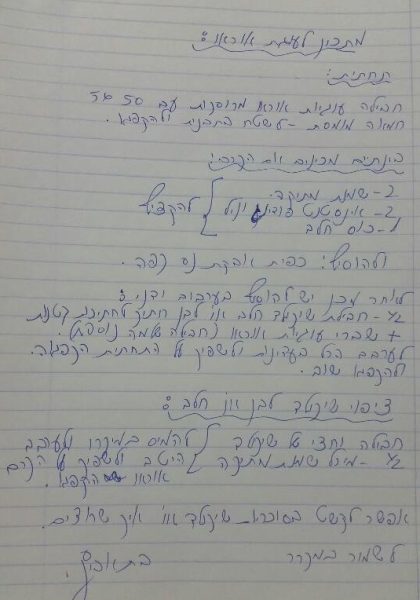 מתכון לעוגת אוראו:
תחתית:
חבילה עוגיות אוראו מרוסקות עם 50 גרם
חמאה מומסת - לשטח בתבנית ולהקפיא.
בינתיים מכינים את הקרם:
2- שמנת מתוקה.
2- אינסטנט פודינג וניל } להקציף
1- כוס חלב
ולהוסיף: כפית אבקת נס קפה.
לאחר מכן יש להוסיף בערבוב ידני:
1/2- חבילת שוקולד חלב או לבן חתוך לחתיכות קטנות
+ שברי עוגיות אוראו (חבילה שלמה נוספת).
לערבב הכל בעדינות ולשפוך על התחתית הקפואה.
ולהקפיא שוב.
ציפוי שוקולד לבן או חלב:
חבילה וחצי של שוקולד } להמיס במיקרו ולערבב
1/2- מיכל שמנת מתוקה } היטב ולשפוך על הקרם
אוראו הקפוא.
אפשר לקשט בסוכריות שוקולד או איך שרוצים.
לשמור במקרר בתאבון.